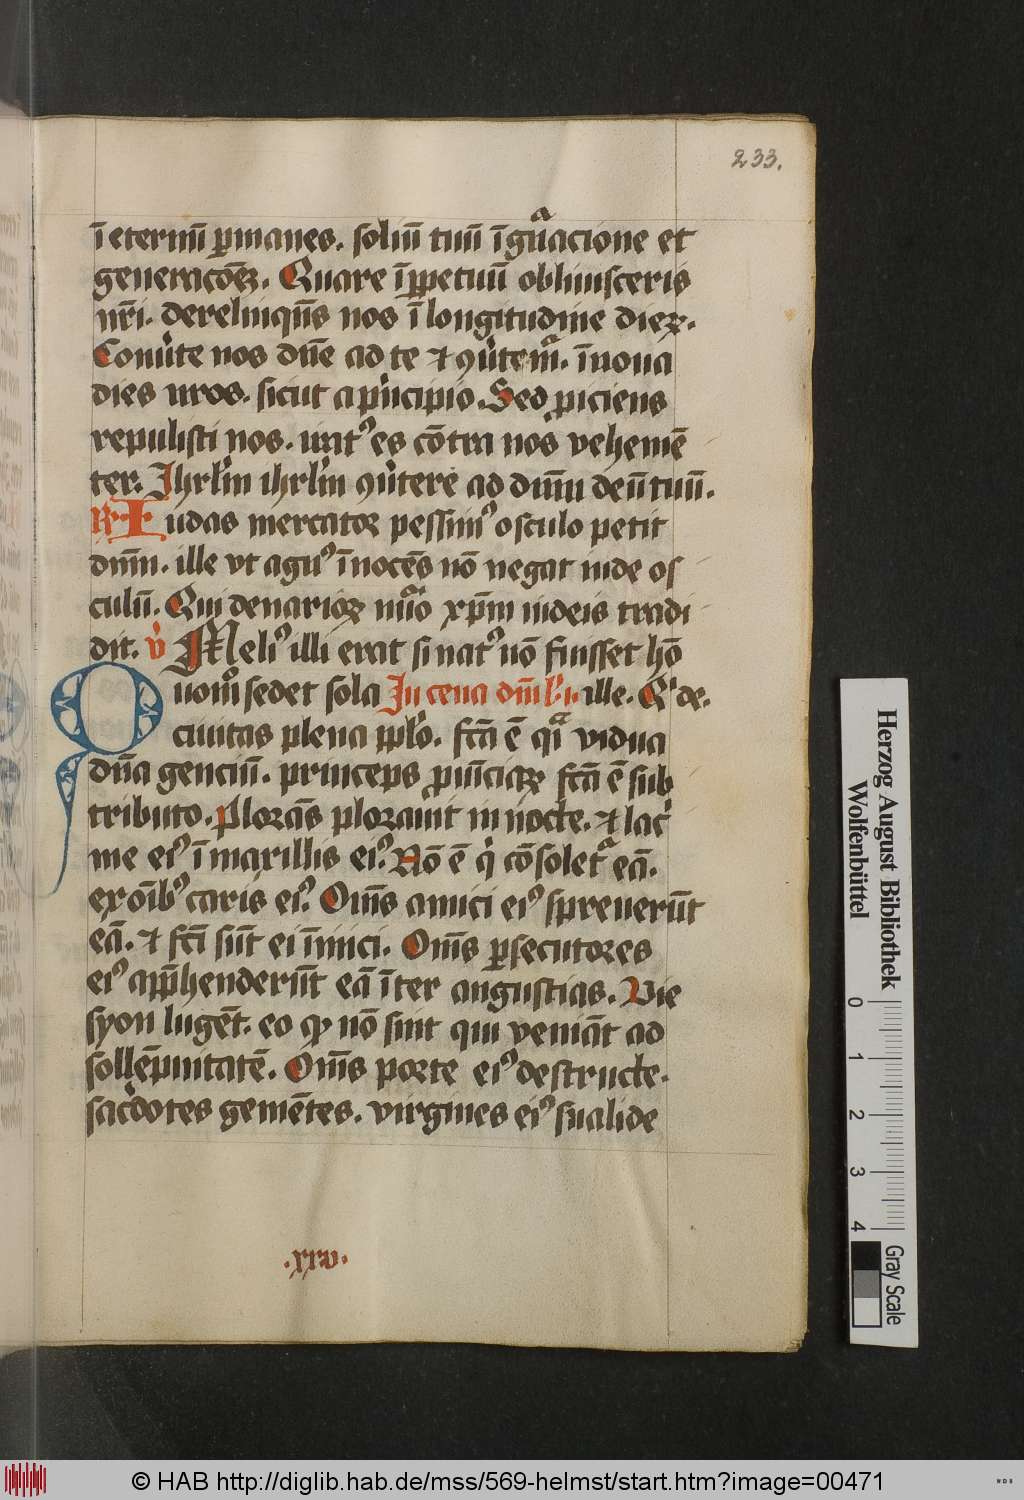 233.
ī eternū ꝑmanes. soliū tuū ī gn̄acione et
generacōeꝫ. Quare ī ꝑpetuū obliuisceris
nr̄i. derelinquēs nos ī longitudine dieꝝ.
Conu̾te nos dn̄e ad te ⁊ ꝯu̾temͬ. īnoua
dies nr̄os. sicut a pͥncipio. Sed ꝓiciens
repulisti nos. iratꝰ es cōtra nos vehemē
ter. Ihrl̄m ihrl̄m ꝯu̾tere ad dn̄m deū tuū.
R̸ Iudas mercator pessimꝰ osculo petit
dn̄m. ille vt agnꝰ īnocēs nō negat iude os
culū. Qui denarioꝝ nūo xp̄m iudeis tradi
dit. v̾ Meliꝰ illi erat si natꝰ nō fuisset hō
Quomͦ sedet sola In cena dn̄i ille. Qͥ de.
ciuitas plena ppl̄o. fcā ē qͣi vidua
dn̄a genciū. princeps ꝓuīciaꝝ fcā ē sub
tributo. Ploras̄ plorauit in nocte. ⁊ lac̾
me eiꝰ ī maxillis eiꝰ. Nō ē qͥ cōsoletͬ eā.
ex oībꝰ caris eiꝰ. Om̄s amici eiꝰ spreuerūt
eā. ⁊ fcī sūt ei īimici. Om̄s ꝑsecutores
eiꝰ app̄henderūt eā īter angustias. Vie
syon lugēt. eo ꝙ nō sint qui veniāt ad
sollēpnitatē. Om̄s porte eiꝰ destructe.
sac̾dotes gemētes. virgines eiꝰ sualide
.xxv.
Herzog August Bibliothek
Wolfenbüttel
0 1 2 3 4
Gray Scale
© HAB http://diglib.hab.de/mss/569-helmst/start.htm?image=00471